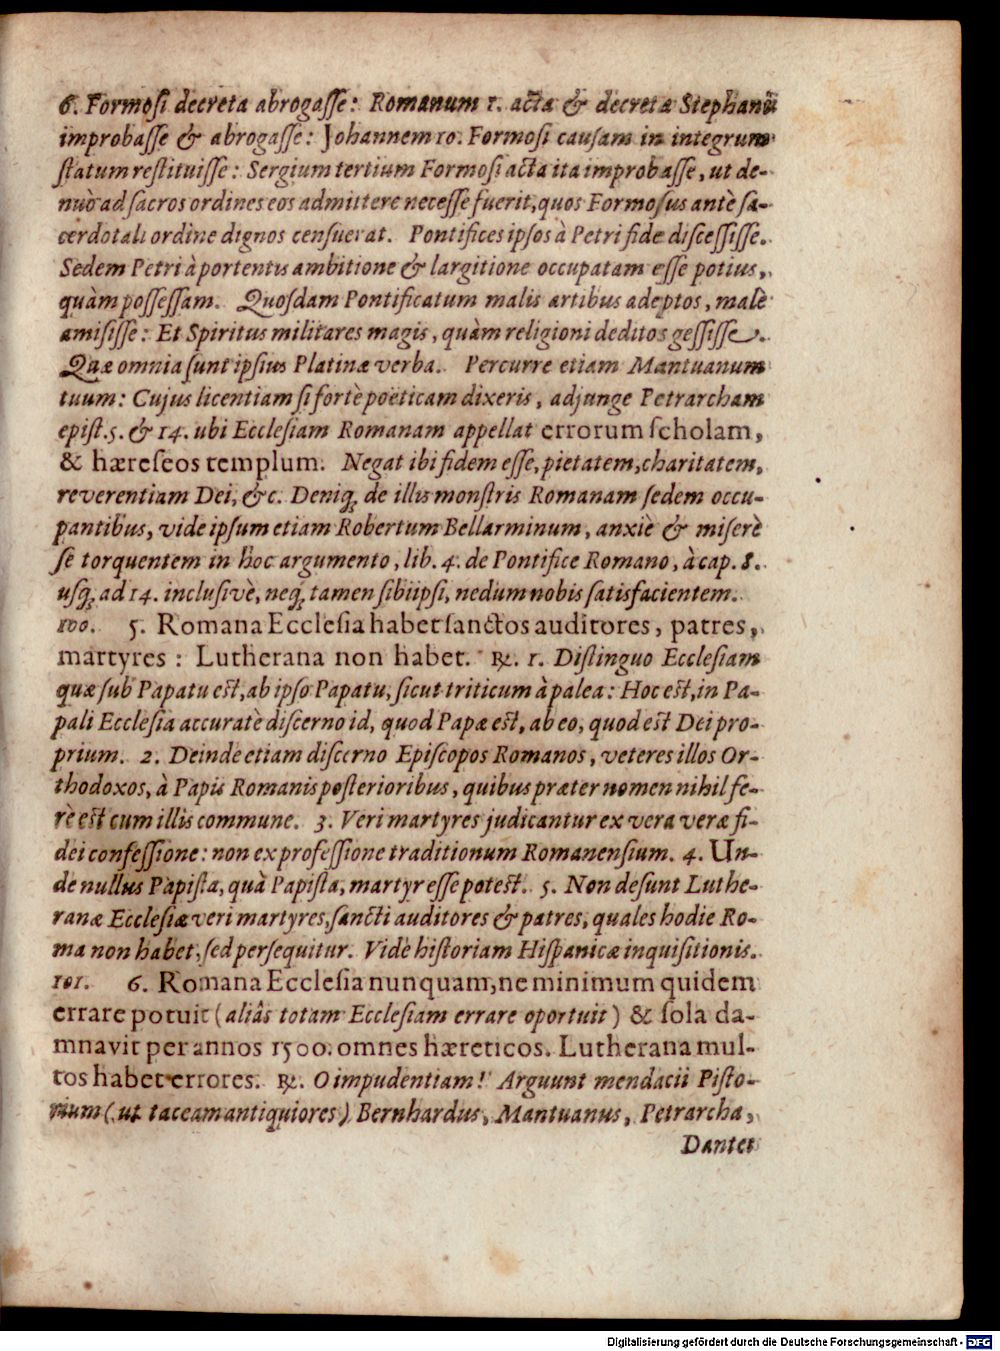 6. Formosi decreta abrogasse: Romanum 1. acta & decreta Stephani
improbasse & abrogasse: Johannem 10. Formosi causam in integrum
statum restituisse: Sergium tertium Formosi acta ita improbasse, ut de-
nuò ad sacros ordines eos admittere necesse fuerit, quos Formosus antè sa-
cerdotali ordine dignos censuerat. Pontifices ipsos à Petri fide discessisse.
Sedem Petri à portentis ambitione & largitione occupatam esse potius,
quàm possessam. Quosdam Pontificatum malis artibus adeptos, malè
amisisse: Et Spiritus militares magis, quàm religioni deditos gessisse.
Quæ omnia sunt ipsius Platinæ verba. Percurre etiam Mantuanum
tuum: Cujus licentiam si fortè poëticam dixeris, adjunge Petrarcham
epist. 5. & 14. ubi Ecclesiam Romanam appellat errorum scholam,
& hæreseos templum. Negat ibi fidem esse, pietatem, charitatem,
reverentiam Dei, &c. Deniq; de illis monstris Romanam sedem occu-
pantibus, vide ipsum etiam Robertum Bellarminum, anxiè & miserè
se torquentem in hoc argumento, lib. 4. de Pontifice Romano, à cap. 8.
usq; ad 14. inclusivè, neq; tamen sibi ipsi, nedum nobis satisfacientem.
100. 5. Romana Ecclesia habet sanctos auditores, patres,
martyres: Lutherana non habet. ℞. 1. Distinguo Ecclesiam
quæ sub Papatu est, ab ipso Papatu, sicut triticum à palea: Hoc est, in Pa-
pali Ecclesia accuratè discerno id, quod Papæ est, ab eo, quod est Dei pro-
prium. 2. Deinde etiam discerno Episcopos Romanos, veteres illos Or-
thodoxos, à Papis Romanis posterioribus, quibus præter nomen nihil fe-
rè est cum illis commune. 3. Veri martyres judicantur ex vera veræ fi-
dei confessione: non ex professione traditionum Romanensium. 4. Un-
de nullus Papista, quà Papista, martyr esse potest. 5. Non desunt Luthe-
ranæ Ecclesiæ veri martyres, sancti auditores & patres, quales hodie Ro-
ma non habet, sed persequitur. Vide historiam Hispanicæ inquisitionis.
101. 6. Romana Ecclesia nunquam, ne minimum quidem
errare potuit (aliâs totam Ecclesiam errare oportuit) & sola da-
mnavit per annos 1500. omnes hæreticos. Lutherana mul-
tos habet errores. ℞. O impudentiam! Arguunt mendacii Pisto-
rium (ut taceam antiquiores) Bernhardus, Mantuanus, Petrarcha,
Dantes
Digitalisierung gefördert durch die Deutsche Forschungsgemeinschaft - DFG